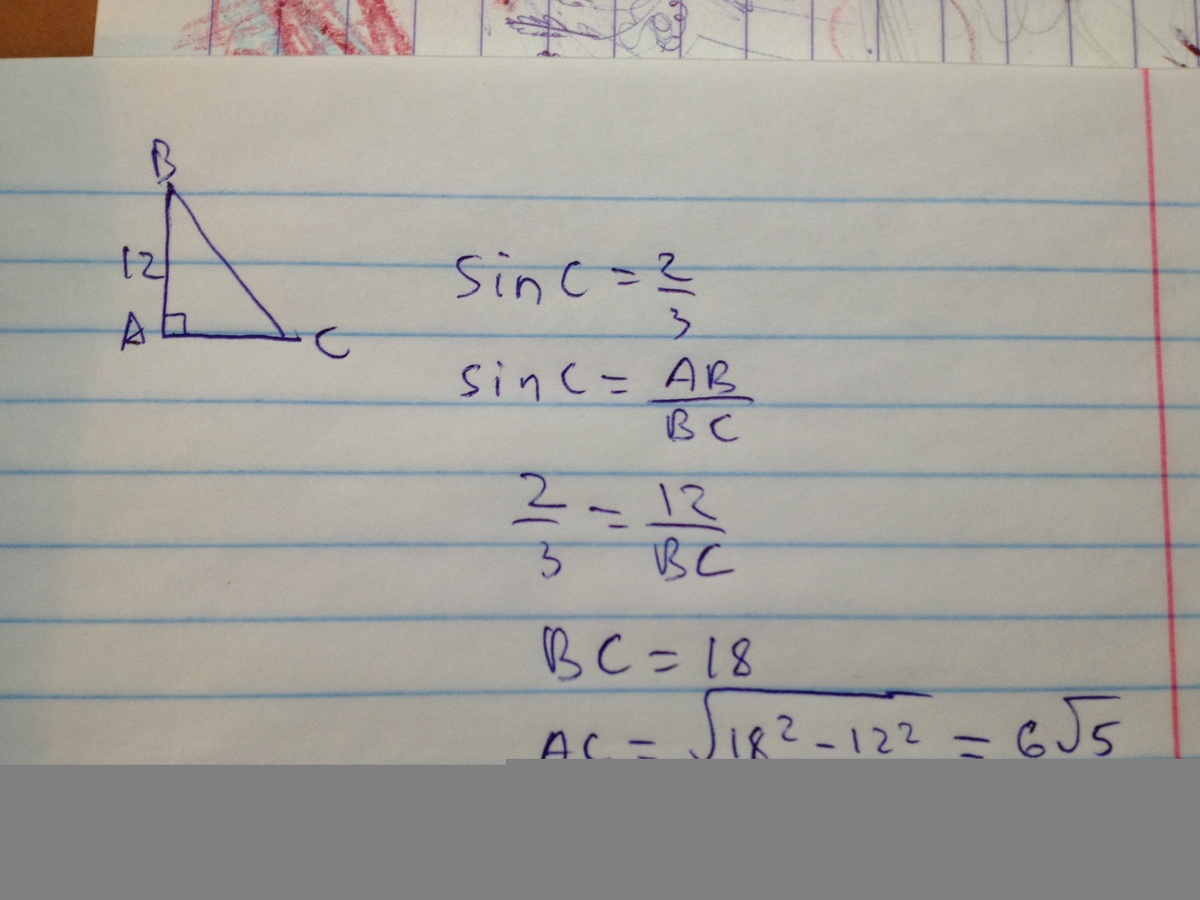 B
12
A
C
sin C = 2/3
sin C = AB/BC
2/3 = 12/BC
BC = 18
AC = √(18² - 12²) = 6√5